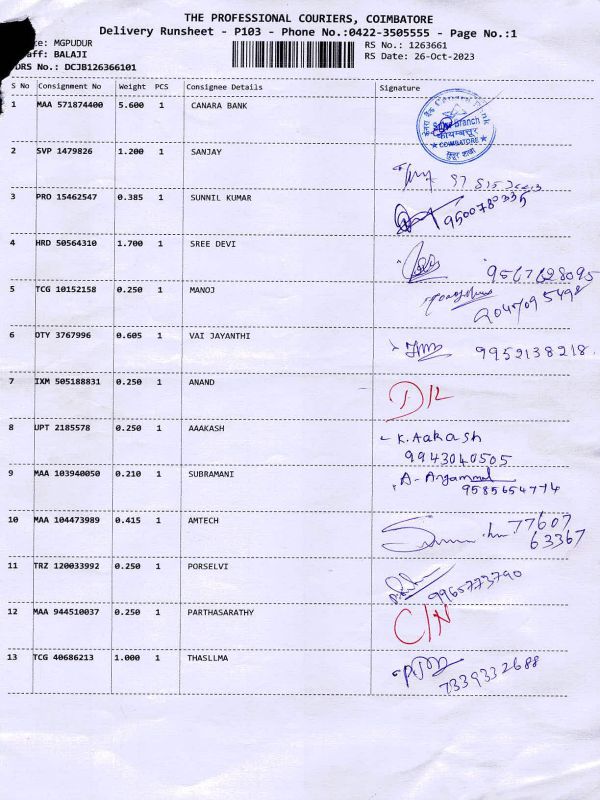 THE PROFESSIONAL COURIERS, COIMBATORE
Delivery Runsheet - P103 - Phone No.:0422-3505555 - Page No.:1
MGPUDUR RS No.: 1263661
BALAJI RS Date: 26-Oct-2023
DRS No.: DCJB126366101
S No Consignment No Weight PCS Consignee Details Signature
1 MAA 571874400 5.600 1 CANARA BANK
Branch
कोयम्बत्तूर
COIMBATORE
2 SVP 1479826 1.200 1 SANJAY
3 PRO 15462547 0.385 1 SUNNIL KUMAR
9500780335
4 HRD 50564310 1.700 1 SREE DEVI
9567628095
5 TCG 10152158 0.250 1 MANOJ
2047095498
6 OTY 3767996 0.605 1 VAI JAYANTHI
9952138218.
7 IXM 505188831 0.250 1 ANAND
D/L
8 UPT 2185578 0.250 1 AAAKASH
K. Aakash
9943040505
9 MAA 103940050 0.210 1 SUBRAMANI
9585654774
10 MAA 104473989 0.415 1 AMTECH
77607
63367
11 TRZ 120033992 0.250 1 PORSELVI
9965773790
12 MAA 944510037 0.250 1 PARTHASARATHY
C/N
13 TCG 40686213 1.000 1 THASLLMA
7339332688